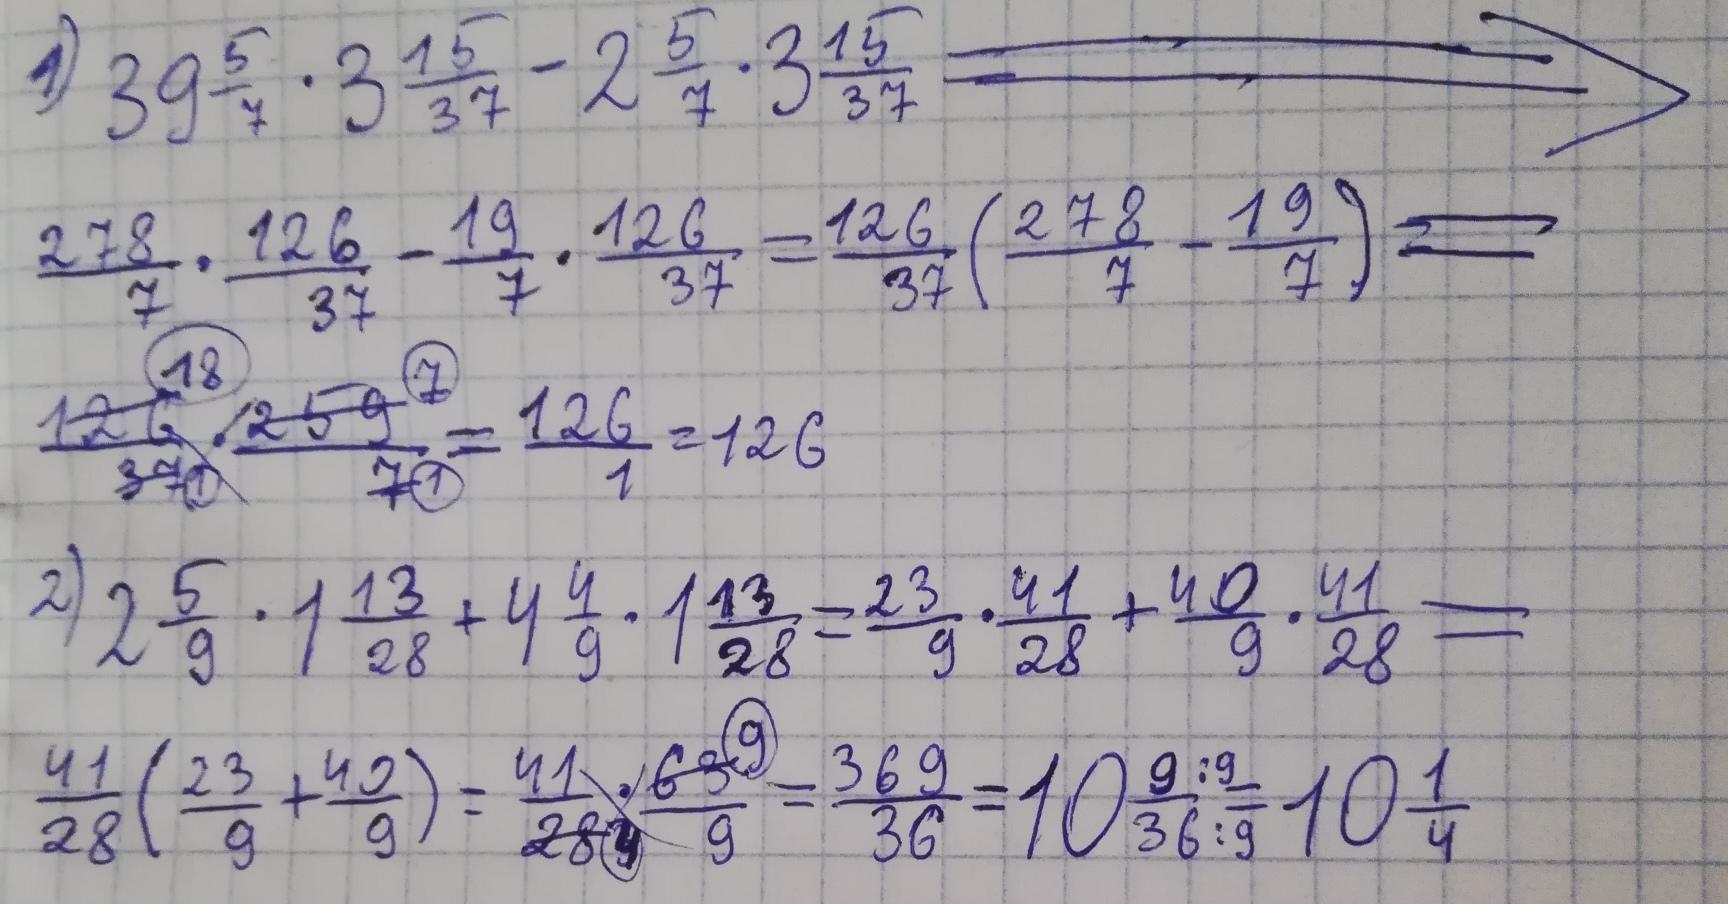 1) 39 5/7 · 3 15/37 - 2 5/7 · 3 15/37 =
278/7 · 126/37 - 19/7 · 126/37 = 126/37 (278/7 - 19/7) =
126 18/37 1 · 259 7/7 1 = 126/1 = 126
2) 2 5/9 · 1 13/28 + 4 4/9 · 1 13/28 = 23/9 · 41/28 + 40/9 · 41/28 =
41/28 (23/9 + 40/9) = 41/28 4 · 63 9/9 = 369/36 = 10 9:9/36:9 = 10 1/4